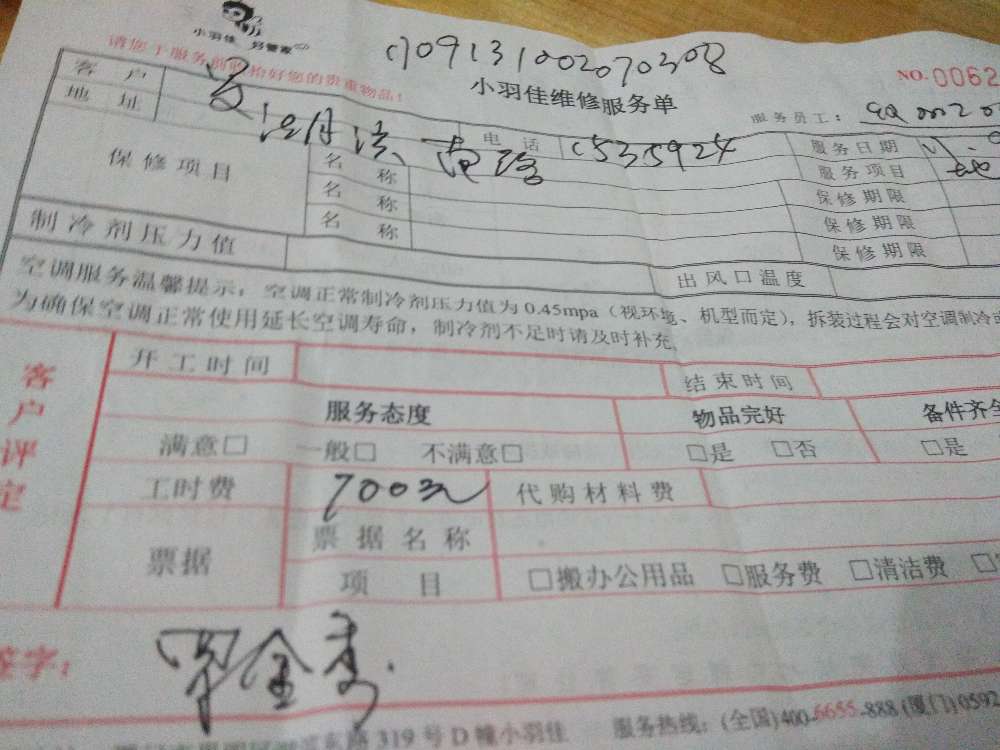 小羽佳 好管家
请您于服务前收拾好您的贵重物品!
小羽佳维修服务单
NO.0062
服务员工:
客户
电话
服务日期
地址
服务项目
保修项目
名称
保修期限
名称
保修期限
名称
保修期限
制冷剂压力值
出风口温度
空调服务温馨提示:空调正常制冷剂压力值为0.45mpa(视环境、机型而定),拆装过程会对空调制冷
为确保空调正常使用延长空调寿命,制冷剂不足时请及时补充
客户评定
开工时间
结束时间
服务态度
物品完好
备件齐全
满意□ 一般□ 不满意□
□是 □否
□是
工时费
700元
代购材料费
票据
票据名称
项目
□搬办公用品 □服务费 □清洁费
签字:
319号D幢小羽佳 服务热线:(全国)400-6655-888(厦门)0592